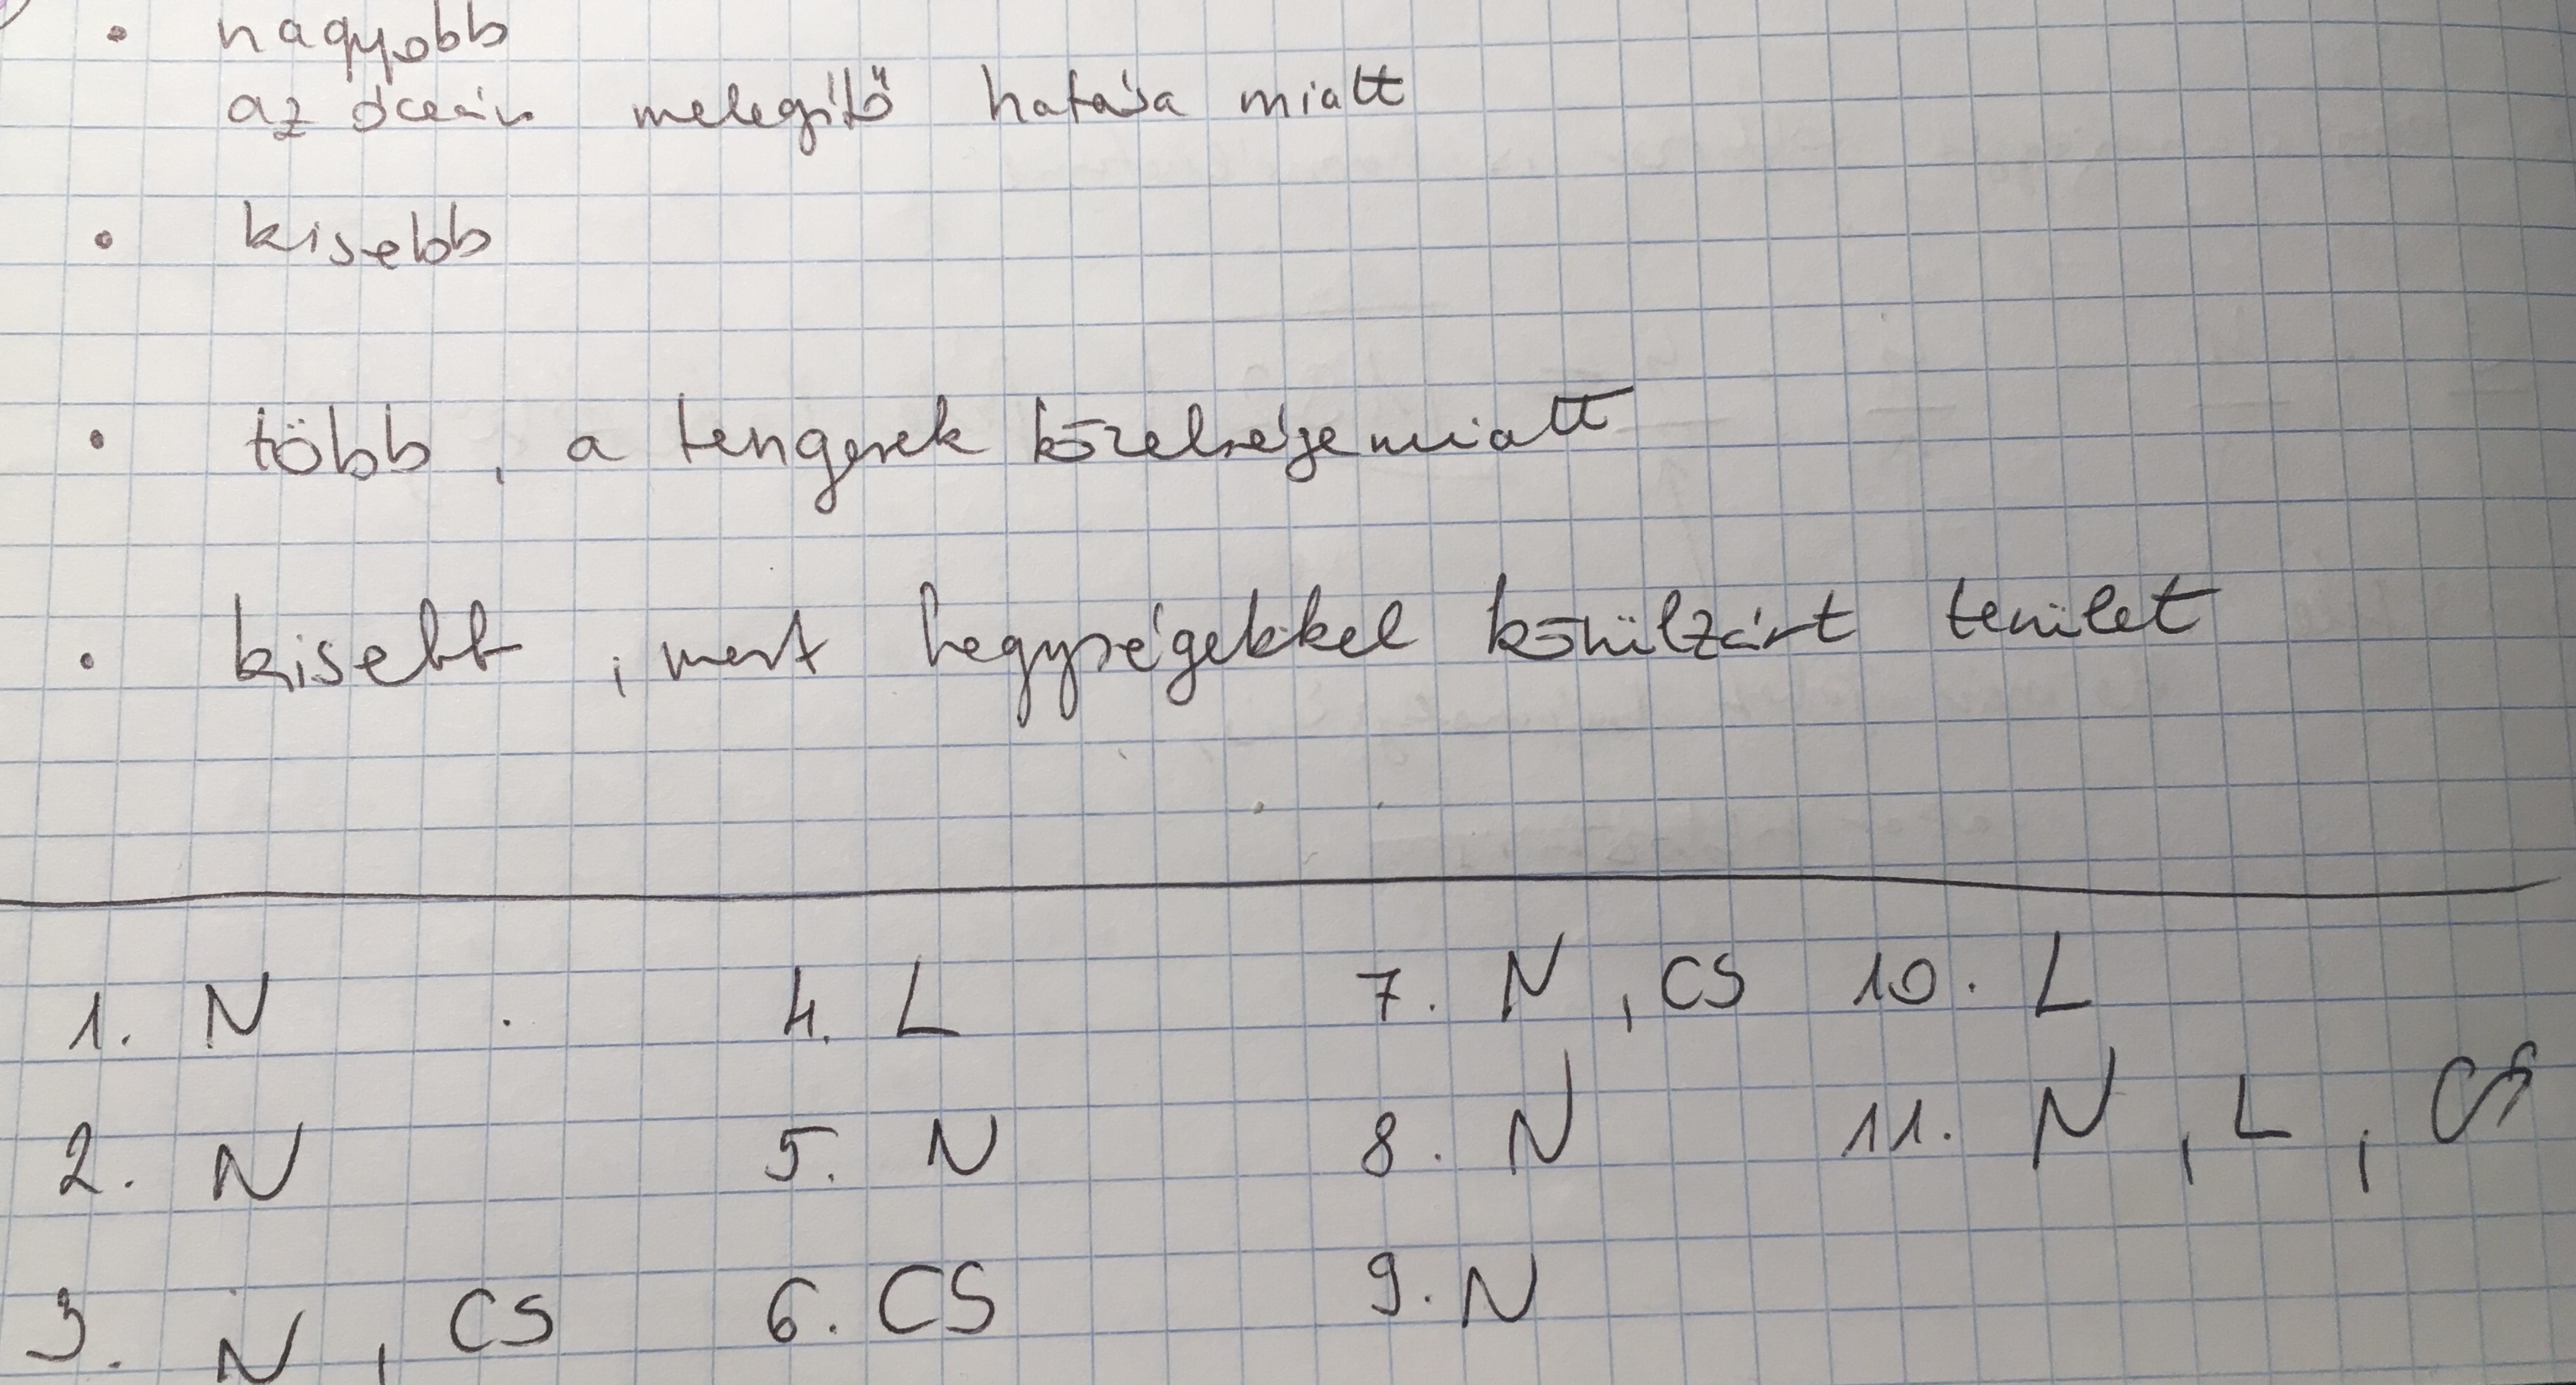 • nagyobb
az óceán melegítő hatása miatt
• kisebb
• több, a tengerek közelsége miatt
• kisebb, mert hegységekkel körülzárt terület
1. N 4. L 7. N, CS 10. L
2. N 5. N 8. N 11. N, L, CS
3. N, CS 6. CS 9. N